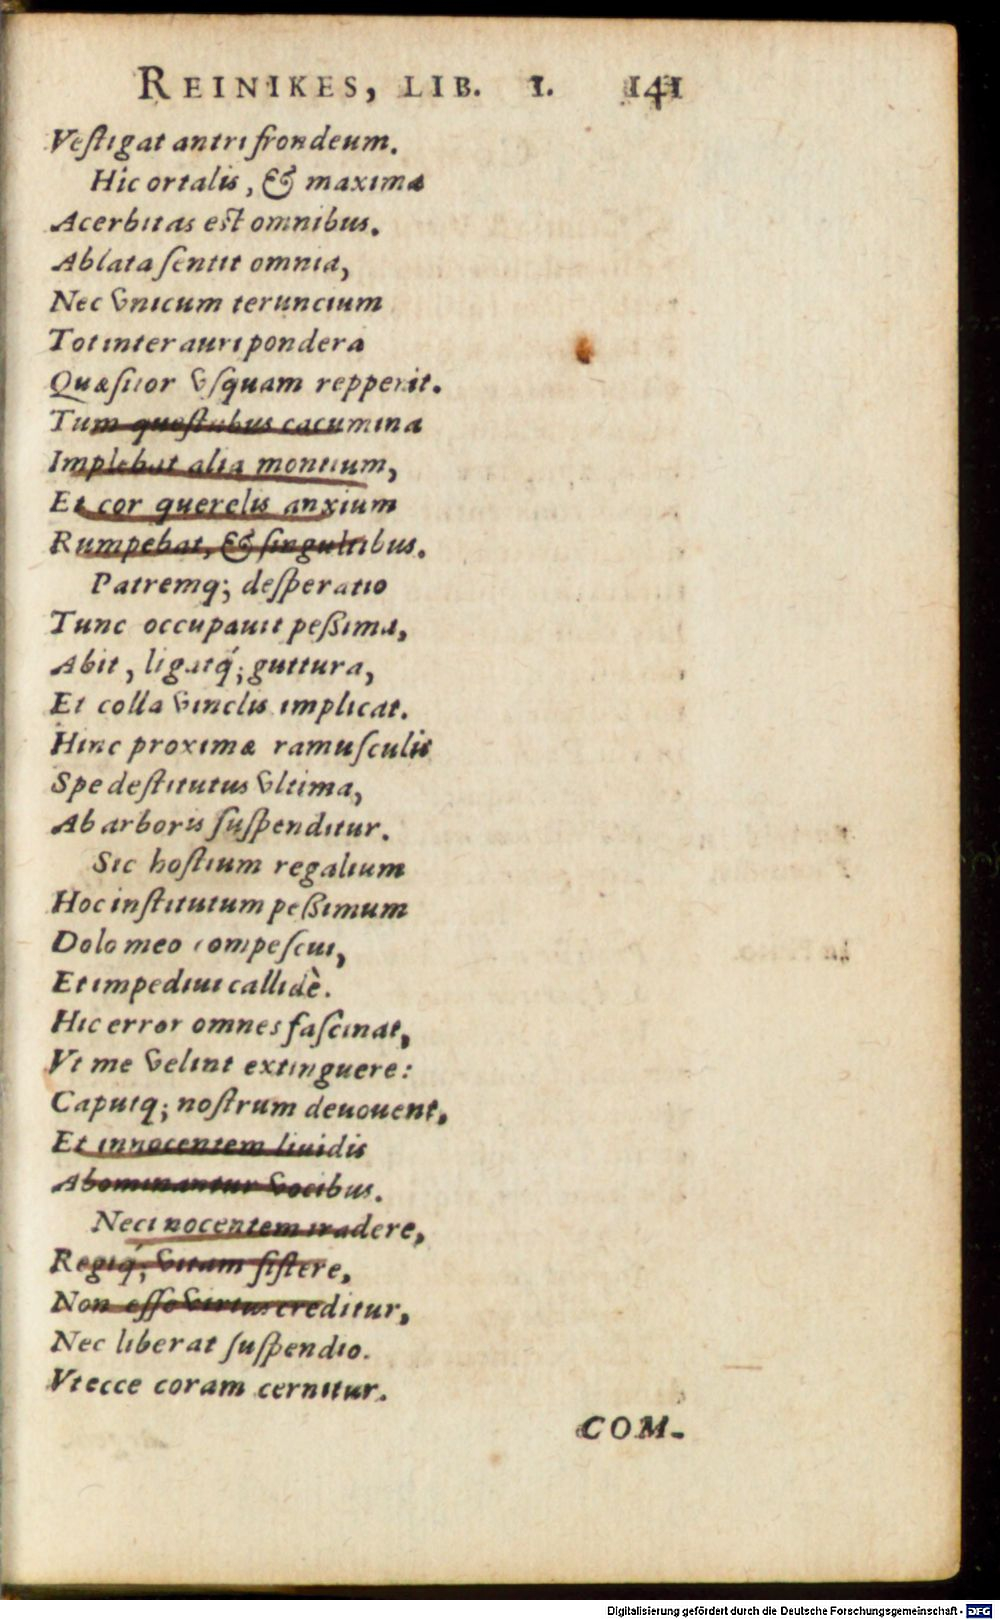 REINIKES, LIB. 1. 141
Veſtigat antri frondeum.
Hic ortalis, & maxima
Acerbitas eſt omnibus.
Ablata ſentit omnia,
Nec vnicum teruncium
Tot inter auri pondera
Quæſitor vſquam repperit.
Tum queſtubus cacumina
Implebat alta montium,
Et cor querelis anxium
Rumpebat, & ſingultibus.
Patremq; deſperatio
Tunc occupauit peßima,
Abit, ligatq́; guttura,
Et colla vinclis implicat.
Hinc proximæ ramuſculis
Spe deſtitutus vltima,
Ab arboris ſuſpenditur.
Sic hoſtium regalium
Hoc inſtitutum peßimum
Dolo meo compeſcui,
Et impediui callidè.
Hic error omnes faſcinat,
Vt me velint extinguere:
Caputq; noſtrum deuouent,
Et innocentem liuidis
Abominantur vocibus.
Neci nocentem tradere,
Regiq́; vitam ſiſtere,
Non eſſe virtus creditur,
Nec liberat ſuſpendio.
Vt ecce coram cernitur.
COM-
Digitalisierung gefördert durch die Deutsche Forschungsgemeinschaft - DFG